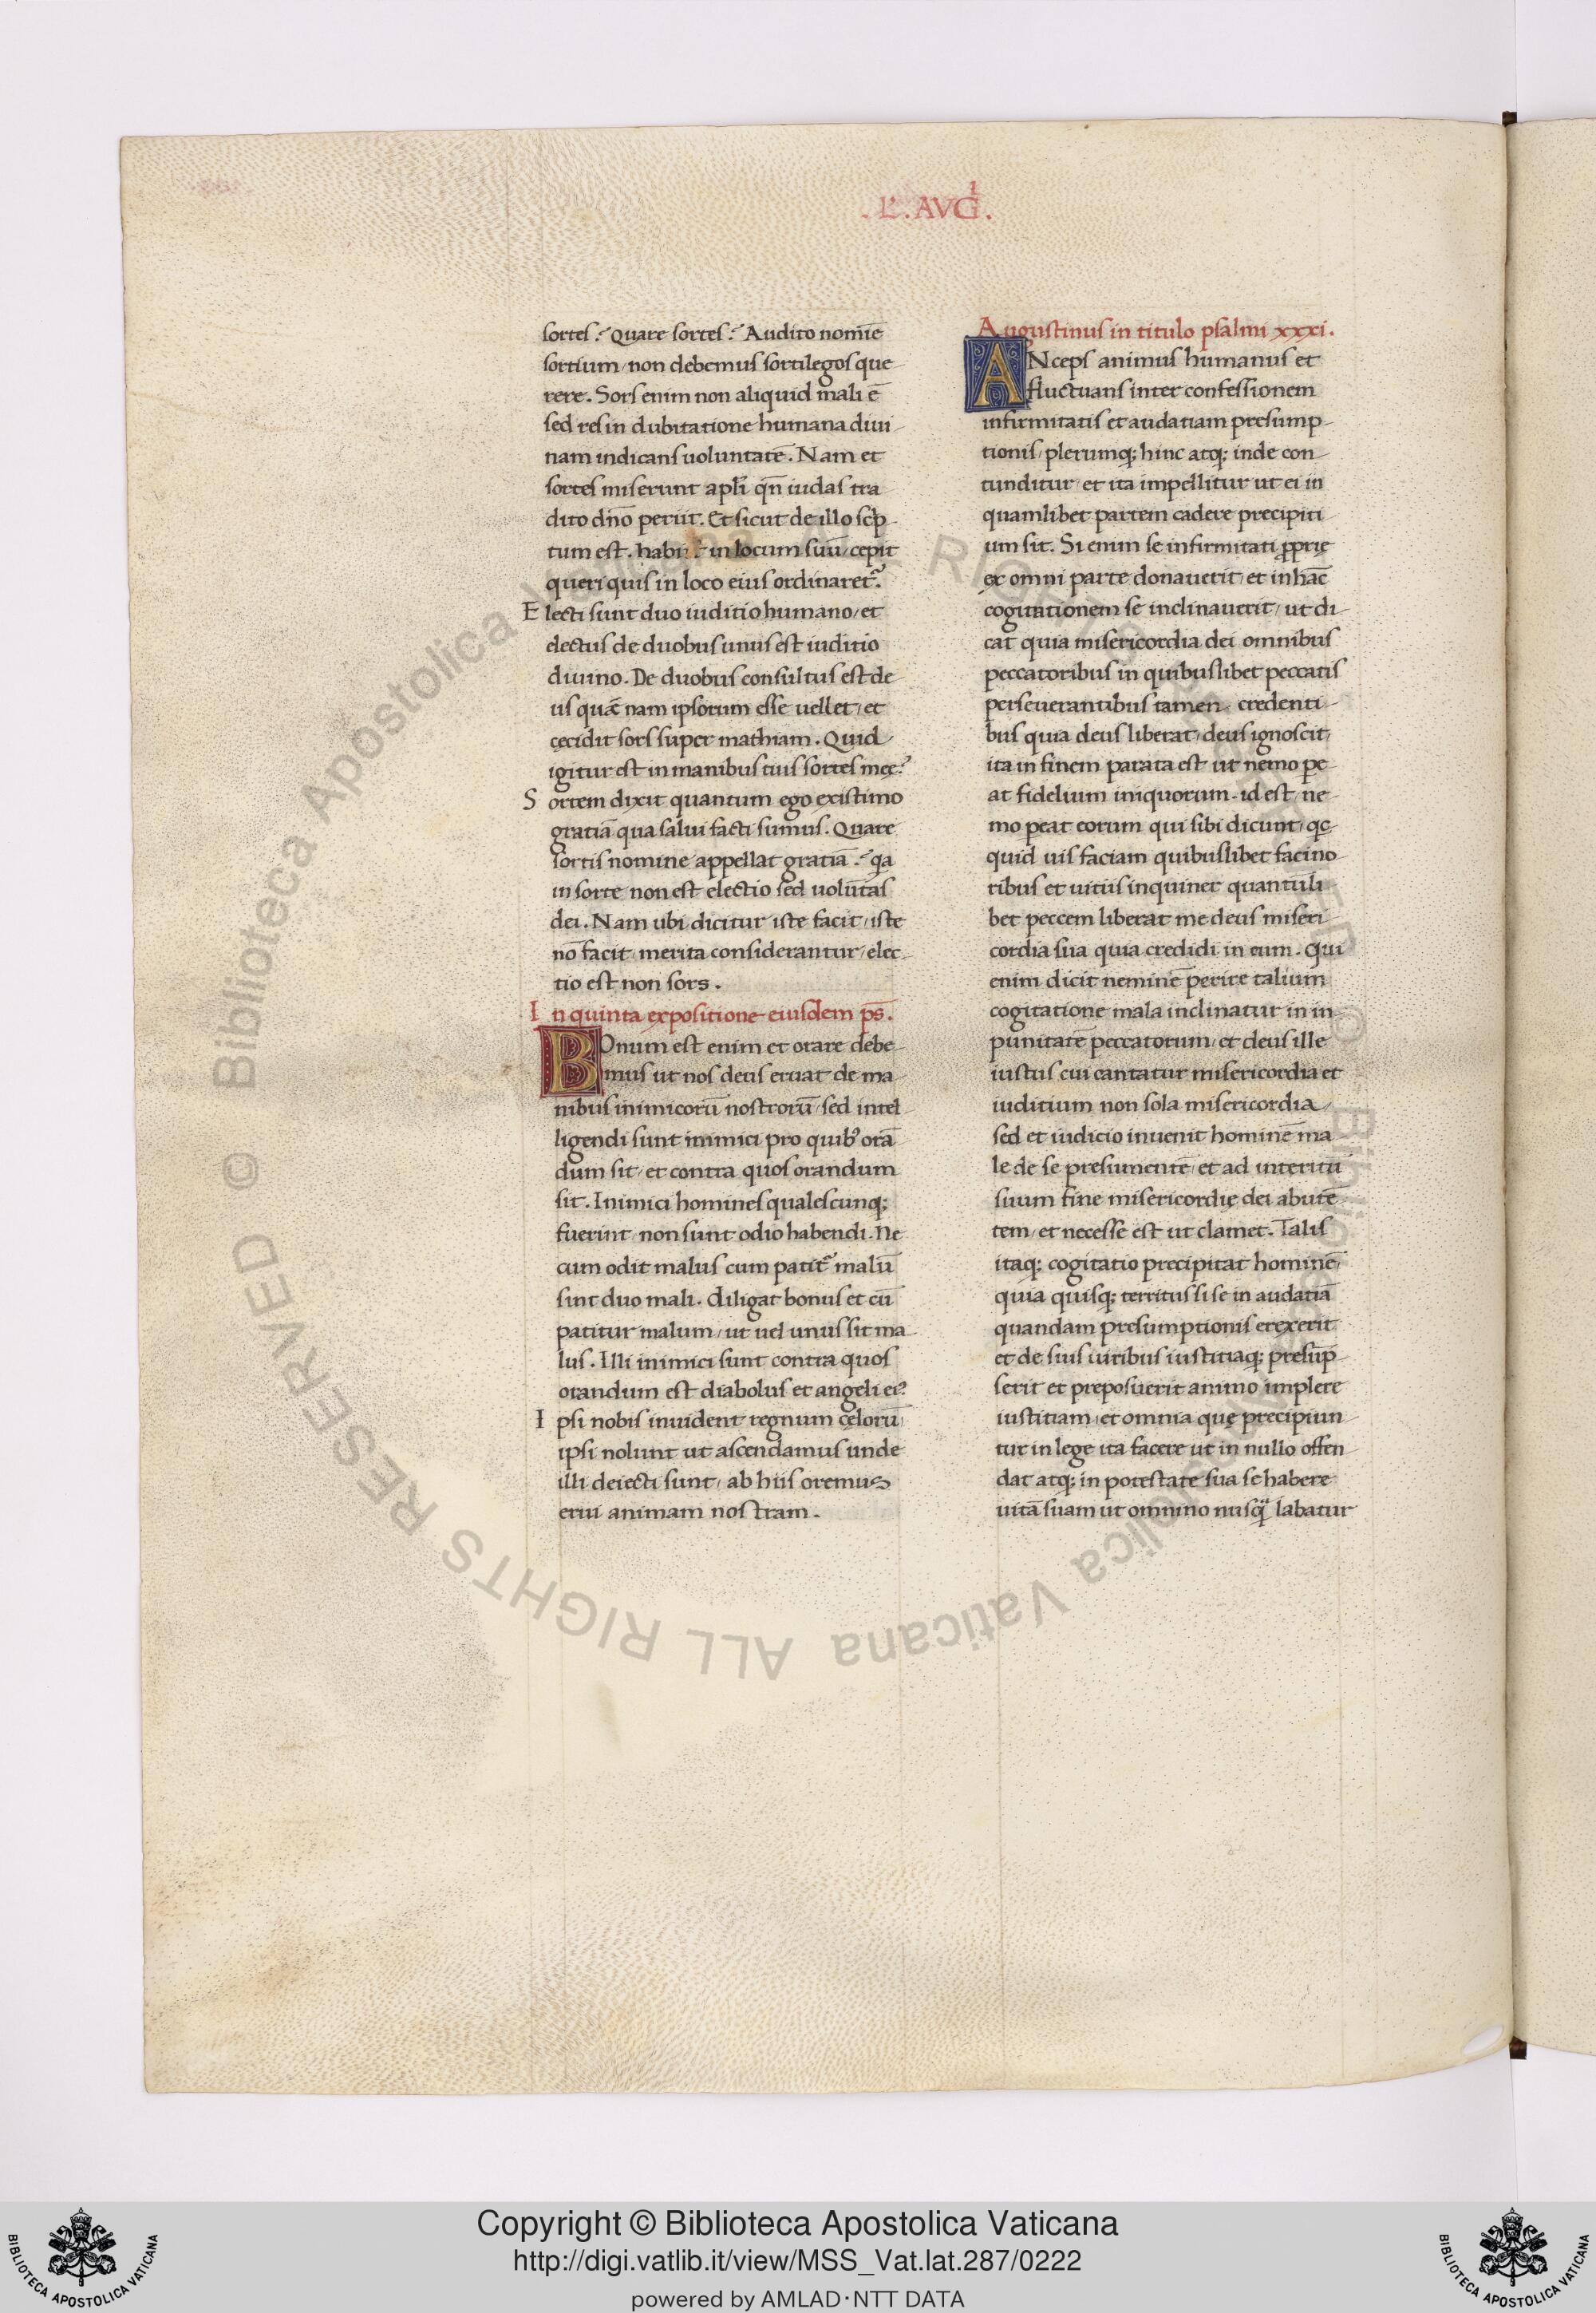 .L̓.AVGͥ.
sortes? Quare sortes? Audito nomīe
sortium, non debemus sortilegos que
rere. Sors enim non aliquid mali ē
sed res in dubitatione humana diui-
nam indicans uoluntatē. Nam et
sortes miserunt apłi qn̄ iudas tra
dito dn̄o periit. Et sicut de illo scp̄-
tum est. habiit in locum suū, cepit
queri quis in loco eius ordinaret᷑.
Electi sunt duo iuditio humano, et
electus de duobus unus est iuditio
diuino. De duobus consultus est de
us quē nam ipsorum esse uellet, et
cecidit sors super mathiam. Quid
igitur est in manibus tuis sortes meę?
Sortem dixit quantum ego existimo
gratiā qua salui facti sumus. Quare
sortis nomine appellat gratiā? qa
in sorte non est electio sed uolūtas
dei. Nam ubi dicitur iste facit, iste
nō facit, merita considerantur, elec-
tio est non sors.
In quinta expositione eiusdem ps̄.
BOnum est enim et orare debe-
mus ut nos deus eruat de ma
nibus inimicorū nostrorū, sed intel
ligendi sunt inimici pro quib᾽ orā
dum sit, et contra quos orandum
sit. Inimici homines qualescunq;
fuerint, non sunt odio habendi. Ne
cum odit malus cum patit᷑ malū
sint duo mali. diligat bonus et cū
patitur malum, ut uel unus sit ma
lus. Illi inimici sunt contra quos
orandum est diabolus et angeli ei᾽
Ipsi nobis inuident regnum cęlorū,
ipsi nolunt ut ascendamus unde
illi deiecti sunt, ab hiis oremus
erui animam nostram.
Augustinus in titulo psalmi xxxi.
ANceps animus humanus et
fluctuans inter confessionem
infirmitatis et audatiam presump-
tionis, plerumq; hinc atq; inde con-
tunditur, et ita impellitur ut ei in
quamlibet partem cadere precipiti
um sit. Si enim se infirmitati ꝓprię
ex omni parte donauerit, et in hāc
cogitationem se inclinauerit, ut di-
cat quia misericordia dei omnibus
peccatoribus in quibuslibet peccatis
perseuerantibus tamen, credenti-
bus quia deus liberat, deus ignoscit,
ita in finem parata est ut nemo pe
at fidelium iniquorum. id est, ne-
mo peat eorum qui sibi dicunt, qc̄
quid uis faciam quibuslibet facino-
ribus et uitiis inquiner quantūli-
bet peccem liberat me deus miseri-
cordia sua quia credidi in eum. Qui
enim dicit neminē perire talium
cogitatione mala inclinatur in in-
punitatē peccatorum, et deus ille
iustus cui cantatur misericordia et
iuditium non sola misericordia,
sed et iudicio inuenit hominē ma-
le de se presumentē, et ad interitū
suum fine misericordię dei abutē-
tem, et necesse est ut clamet. Talis
itaq; cogitatio precipitat hominē,
quia quisq; territus si se in audatiā
quandam presumptionis erexerit
et de suis uiribus iustitiaq; presūp-
serit et preposuerit animo implere
iustitiam, et omnia quę precipiun-
tur in lege ita facere ut in nullo offen
dat atq; in potestate sua se habere
uitā suam ut omnino nusq̄ labatur
© Biblioteca Apostolica Vaticana ALL RIGHTS RESERVED
© Biblioteca Apostolica Vaticana ALL RIGHTS RESERVED
Copyright © Biblioteca Apostolica Vaticana
http://digi.vatlib.it/view/MSS_Vat.lat.287/0222
powered by AMLAD·NTT DATA
BIBLIOTECA APOSTOLICA VATICANA
BIBLIOTECA APOSTOLICA VATICANA